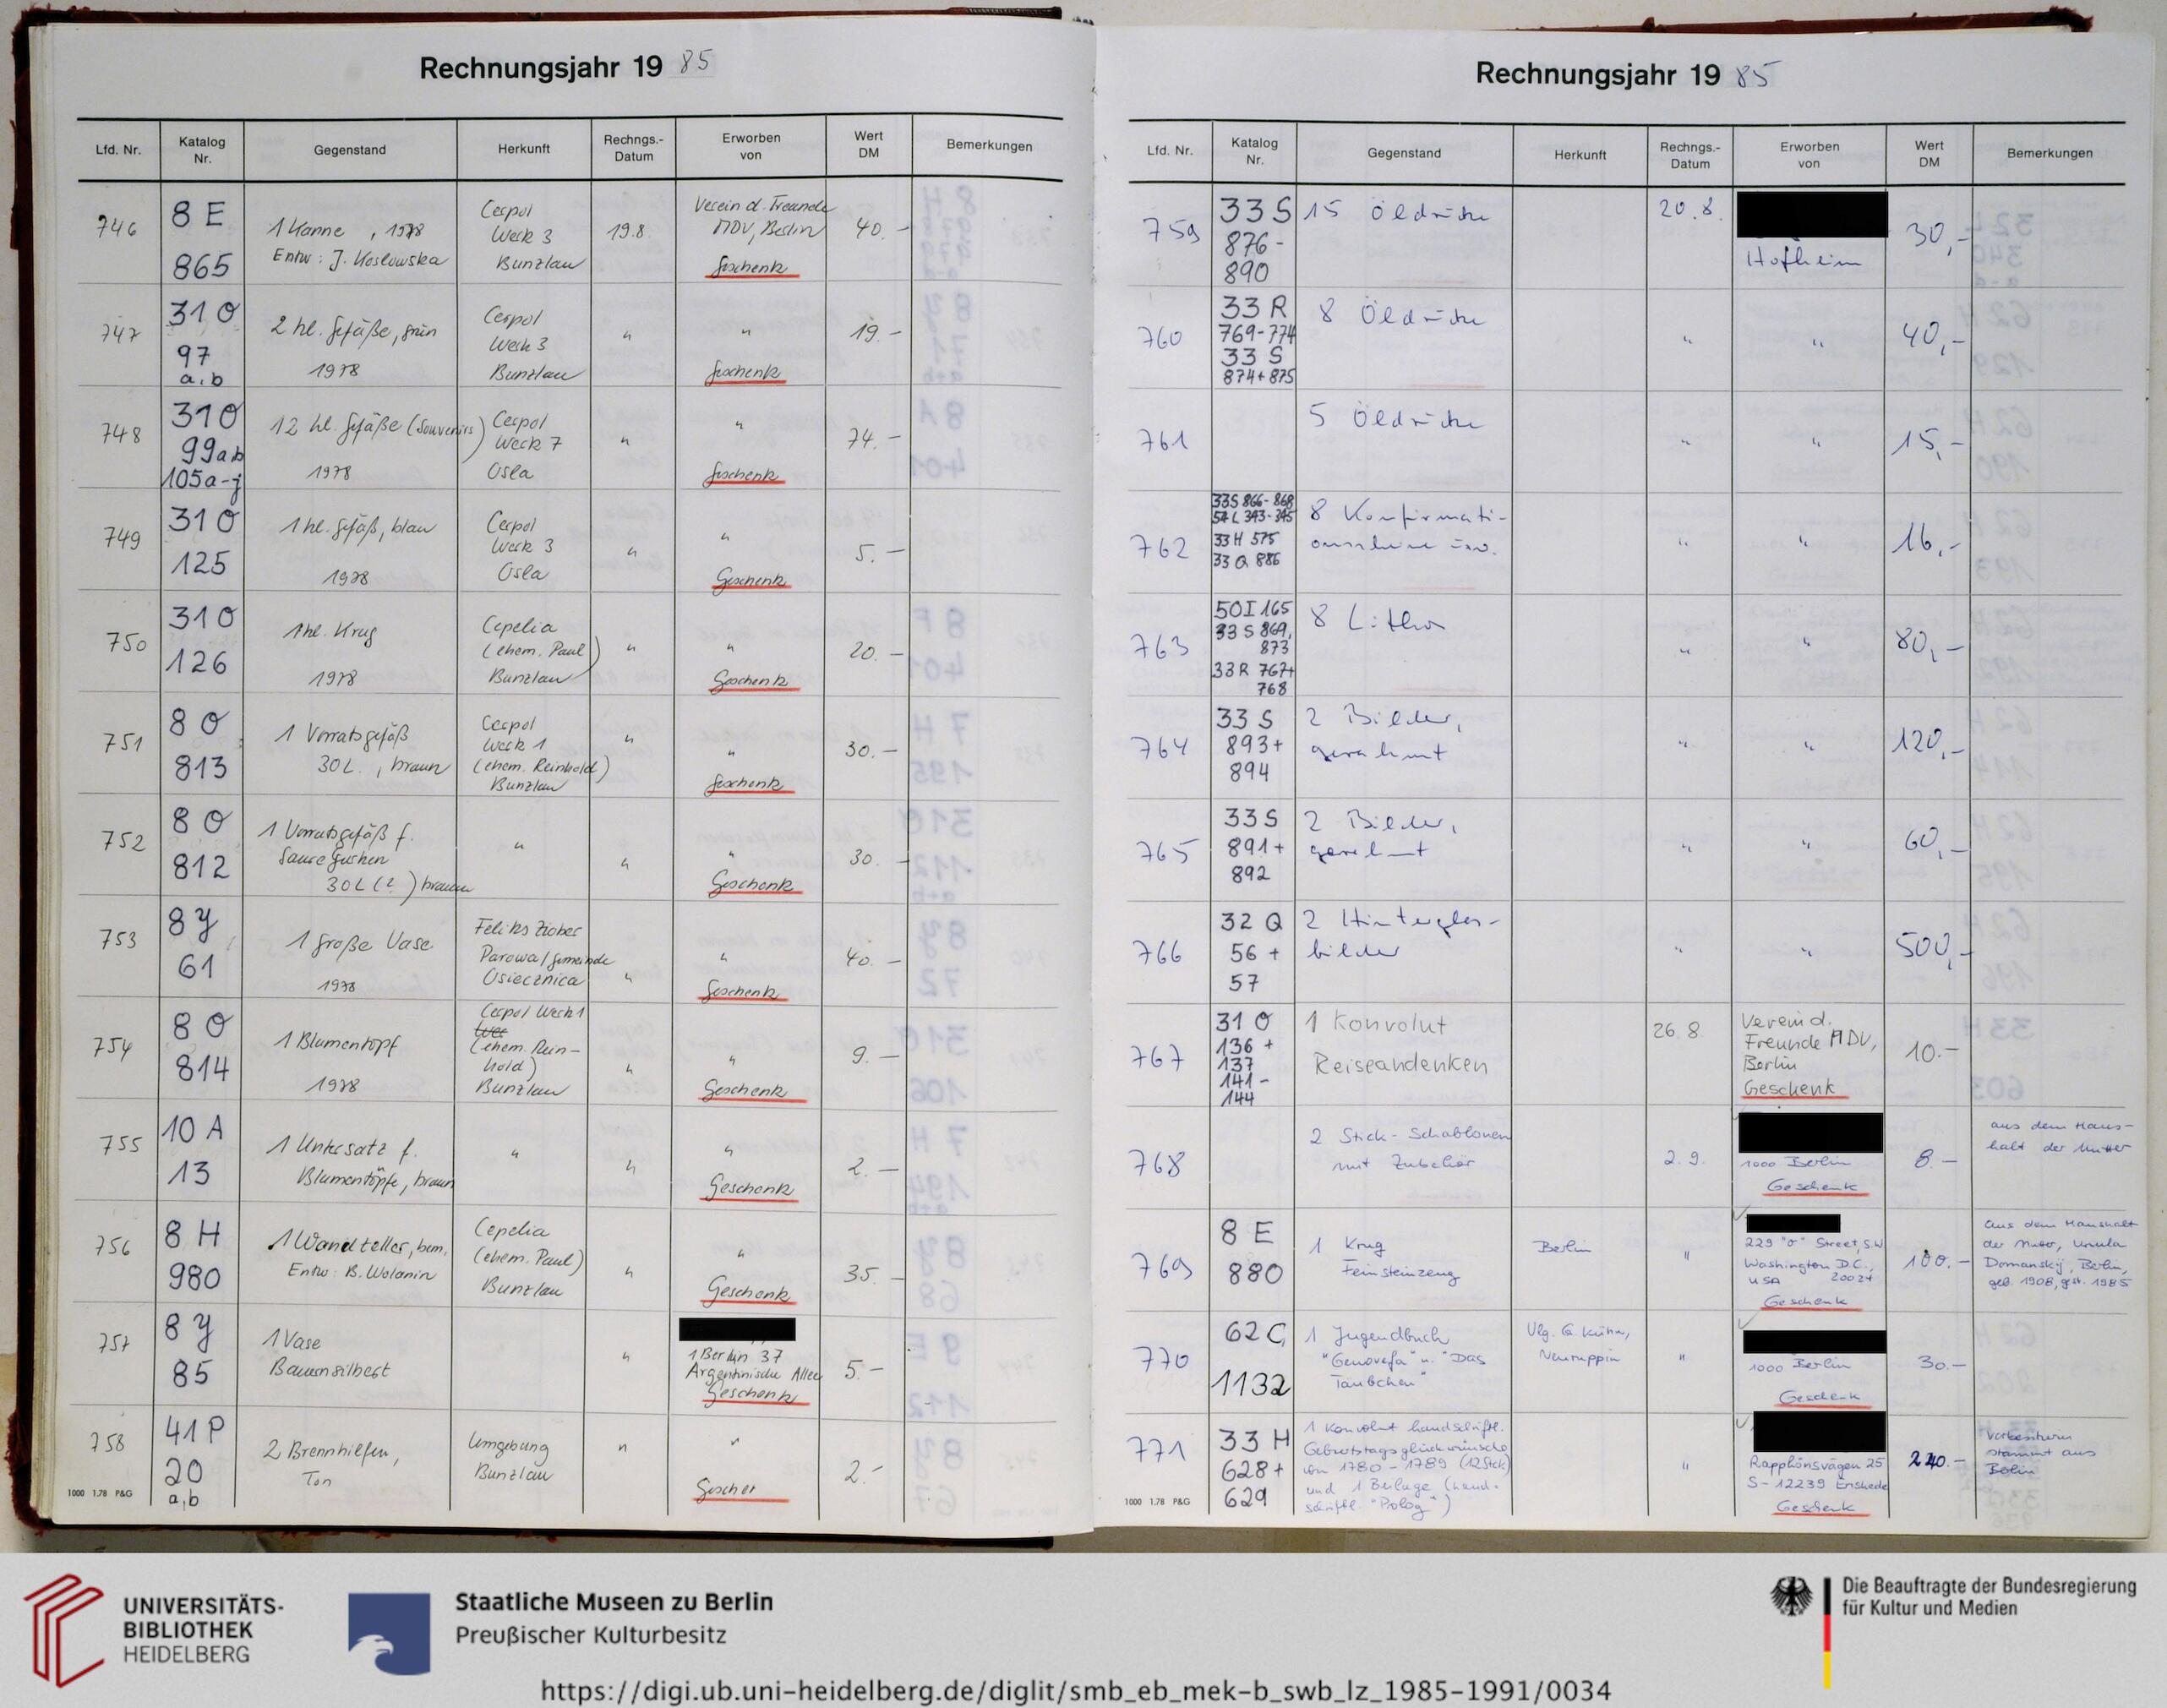 Rechnungsjahr 19 85
Lfd. Nr. Katalog Nr. Gegenstand Herkunft Rechngs.-Datum Erworben von Wert DM Bemerkungen
746
8 E
865
1 Kanne, 1978
Entw: J. Koslowska
Cerpol
Werk 3
Bunzlau
19.8.
Verein d. Freunde
MDV, Berlin
Geschenk
40.-
747
31 O
97
a,b
2 kl. Gefäße, grün
1978
Cerpol
Werk 3
Bunzlau
"
"
Geschenk
19.-
748
31 O
99ab
105a-j
12 kl. Gefäße (Souvenirs)
1978
Cerpol
Werk 7
Osla
"
"
Geschenk
74.-
749
31 O
125
1 kl. Gefäß, blau
1978
Cerpol
Werk 3
Osla
"
"
Geschenk
5.-
750
31 O
126
1 kl. Krug
1978
Cepelia
(ehem. Paul)
Bunzlau
"
"
Geschenk
20.-
751
8 O
813
1 Vorratsgefäß
30 L., braun
Cerpol
Werk 1
(ehem. Reinhold)
Bunzlau
"
"
Geschenk
30.-
752
8 O
812
1 Vorratsgefäß f.
Saure Gurken
30 L (?) braun
"
"
"
Geschenk
30.-
753
8 y
61
1 große Vase
1978
Feliks
Parowa/Gemeinde
Osiecznica
"
"
Geschenk
40.-
754
8 O
814
1 Blumentopf
1978
Cerpol Werk 1
(ehem. Rein-
hold)
Bunzlau
"
"
Geschenk
9.-
755
10 A
13
1 Untersatz f.
Blumentöpfe, braun
"
"
"
Geschenk
2.-
756
8 H
980
1 Wandteller, bem.
Entw: B. Wolanin
Cepelia
(ehem. Paul)
Bunzlau
"
"
Geschenk
35.-
757
8 y
85
1 Vase
Bauernsilber
"
1 Berlin 37
Argentinische Allee
Geschenk
5.-
758
41 P
20
a,b
2 Brennhilfen,
Ton
Umgebung
Bunzlau
"
"
2.-
1000 1.78 P&G
Rechnungsjahr 19 85
Lfd. Nr. Katalog Nr. Gegenstand Herkunft Rechngs.-Datum Erworben von Wert DM Bemerkungen
759
33 S
876-
890
15 Öldrucke
20.8.
Hofheim
30,-
760
33 R
769-774
33 S
874+875
8 Öldrucke
"
"
40,-
761
5 Öldrucke
"
"
15,-
762
33S 866-868
54L 343-345
33 H 575
33 Q 886
8 Konfirmati-
onsscheine usw.
"
"
16,-
763
50I 165
33 S 869,
873
33R 767+
768
8 Lithos
"
"
80,-
764
33 S
893+
894
2 Bilder,
gerahmt
"
"
120,-
765
33 S
891+
892
2 Bilder,
gerahmt
"
"
60,-
766
32 Q
56 +
57
2 Hinterglas-
bilder
"
"
500,-
767
31 O
136 +
137
141-
144
1 Konvolut
Reiseandenken
26.8.
Verein d.
Freunde MDV,
Berlin
Geschenk
10.-
768
2 Stick-Schablonen
mit Zubehör
2.9.
1000 Berlin
Geschenk
8.-
aus dem Haus-
halt der Mutter
769
8 E
880
1 Krug
Feinsteinzeug
Berlin
"
229 "O" Street, S.W
Washington D.C.,
USA 20024
Geschenk
100.-
aus dem Haushalt
der Mutter, Ursula
Domanskij, Berlin,
geb. 1908, gest. 1985
770
62 C
1132
1 Jugendbuch
"Genovefa" u. "Das
Täubchen"
Vlg. G. Kühn,
Neuruppin
"
1000 Berlin
Geschenk
30.-
771
33 H
628+
629
1 Konvolut handschriftl.
Geburtstagsglückwünsche
von 1780-1789 (12 Stck)
und 1 Beilage (hand-
schriftl. "Prolog")
"
Rapphönsvägen 25
S-12239 Enskede
Geschenk
240.-
Vorbesitzerin
stammt aus
Berlin
1000 1.78 P&G
UNIVERSITÄTS-
BIBLIOTHEK
HEIDELBERG
Staatliche Museen zu Berlin
Preußischer Kulturbesitz
Die Beauftragte der Bundesregierung
für Kultur und Medien
https://digi.ub.uni-heidelberg.de/diglit/smb_eb_mek-b_swb_lz_1985-1991/0034